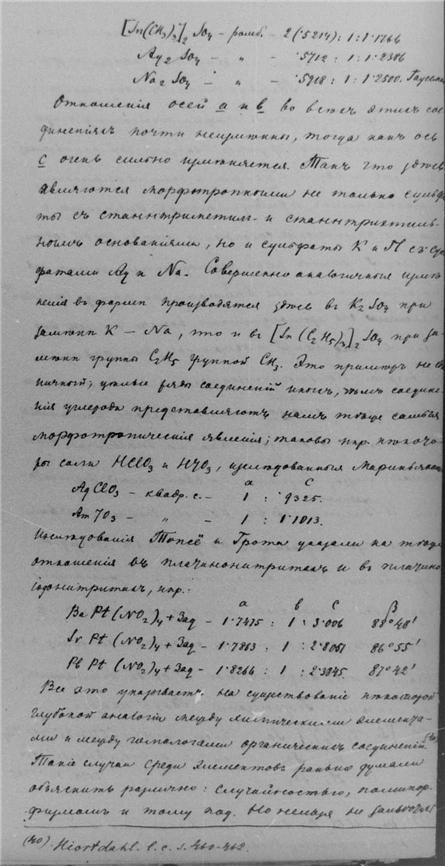 [Sn(CH₃)₃]₂ SO₄ – ромб. – 2(·5214) : 1 : 1·1766
Ag₂ SO₄ – „ – ·5712 : 1 : 1·2386
Na₂ SO₄ – „ – ·5918 : 1 : 1·2500.
Отношенія осей а и в во всѣхъ этихъ сое-
диненіяхъ почти неизмѣнны, тогда какъ ось
с очень сильно измѣняется. Такъ что здѣсь
являются морфотропными не только сульфа-
ты съ станнтриметил- и станнтриэтиль-
нымъ основаніями, но и сульфаты К и Tl съ суль-
фатами Ag и Na. Совершенно аналогичныя измѣ-
ненія въ формѣ производятся здѣсь въ K₂SO₄ при
замѣнѣ K – Na, что и въ [Sn(C₂H₅)₃]₂SO₄ при за-
мѣнѣ группы C₂H₅ группой CH₃. Это примѣръ не еди-
ничный; цѣлые ряды соединеній иныхъ, чѣмъ соедине-
нія углерода представляютъ намъ такія же самыя
морфотропическія явленія; таковы нпр. нѣкото-
ры соли HClO₃ и HJO₃, изслѣдованныя Мариньякомъ
а с
AgClO₃ – квадр. с. – 1 : ·9325.
Am JO₃ – „ – 1 : 1·1013.
Изслѣдованія Топсё и Грота указали на такія же
отношенія въ платинонитритахъ и въ платино-
іодонитритахъ, нпр.:
а b c β
Ba Pt (NO₂)₄ + 3aq – 1·7475 : 1 : 3·006 88°48'
Sr Pt (NO₂)₄ + 3aq – 1·7863 : 1 : 2·8061 86°55'
Pb Pt (NO₂)₄ + 3aq – 1·8266 : 1 : 2·3845 87°42'
Все это указываетъ на существованіе нѣкоторой
глубокой аналогіи между металлическими элемента-
ми и между гомологами органическихъ соединеній.
Такіе случаи среди элементовъ раньше думали
объяснить различно: случайностью, полимор-
физмомъ и тому под. Но нельзя не
(40) Hiortdahl. l. c. S. 460-462.